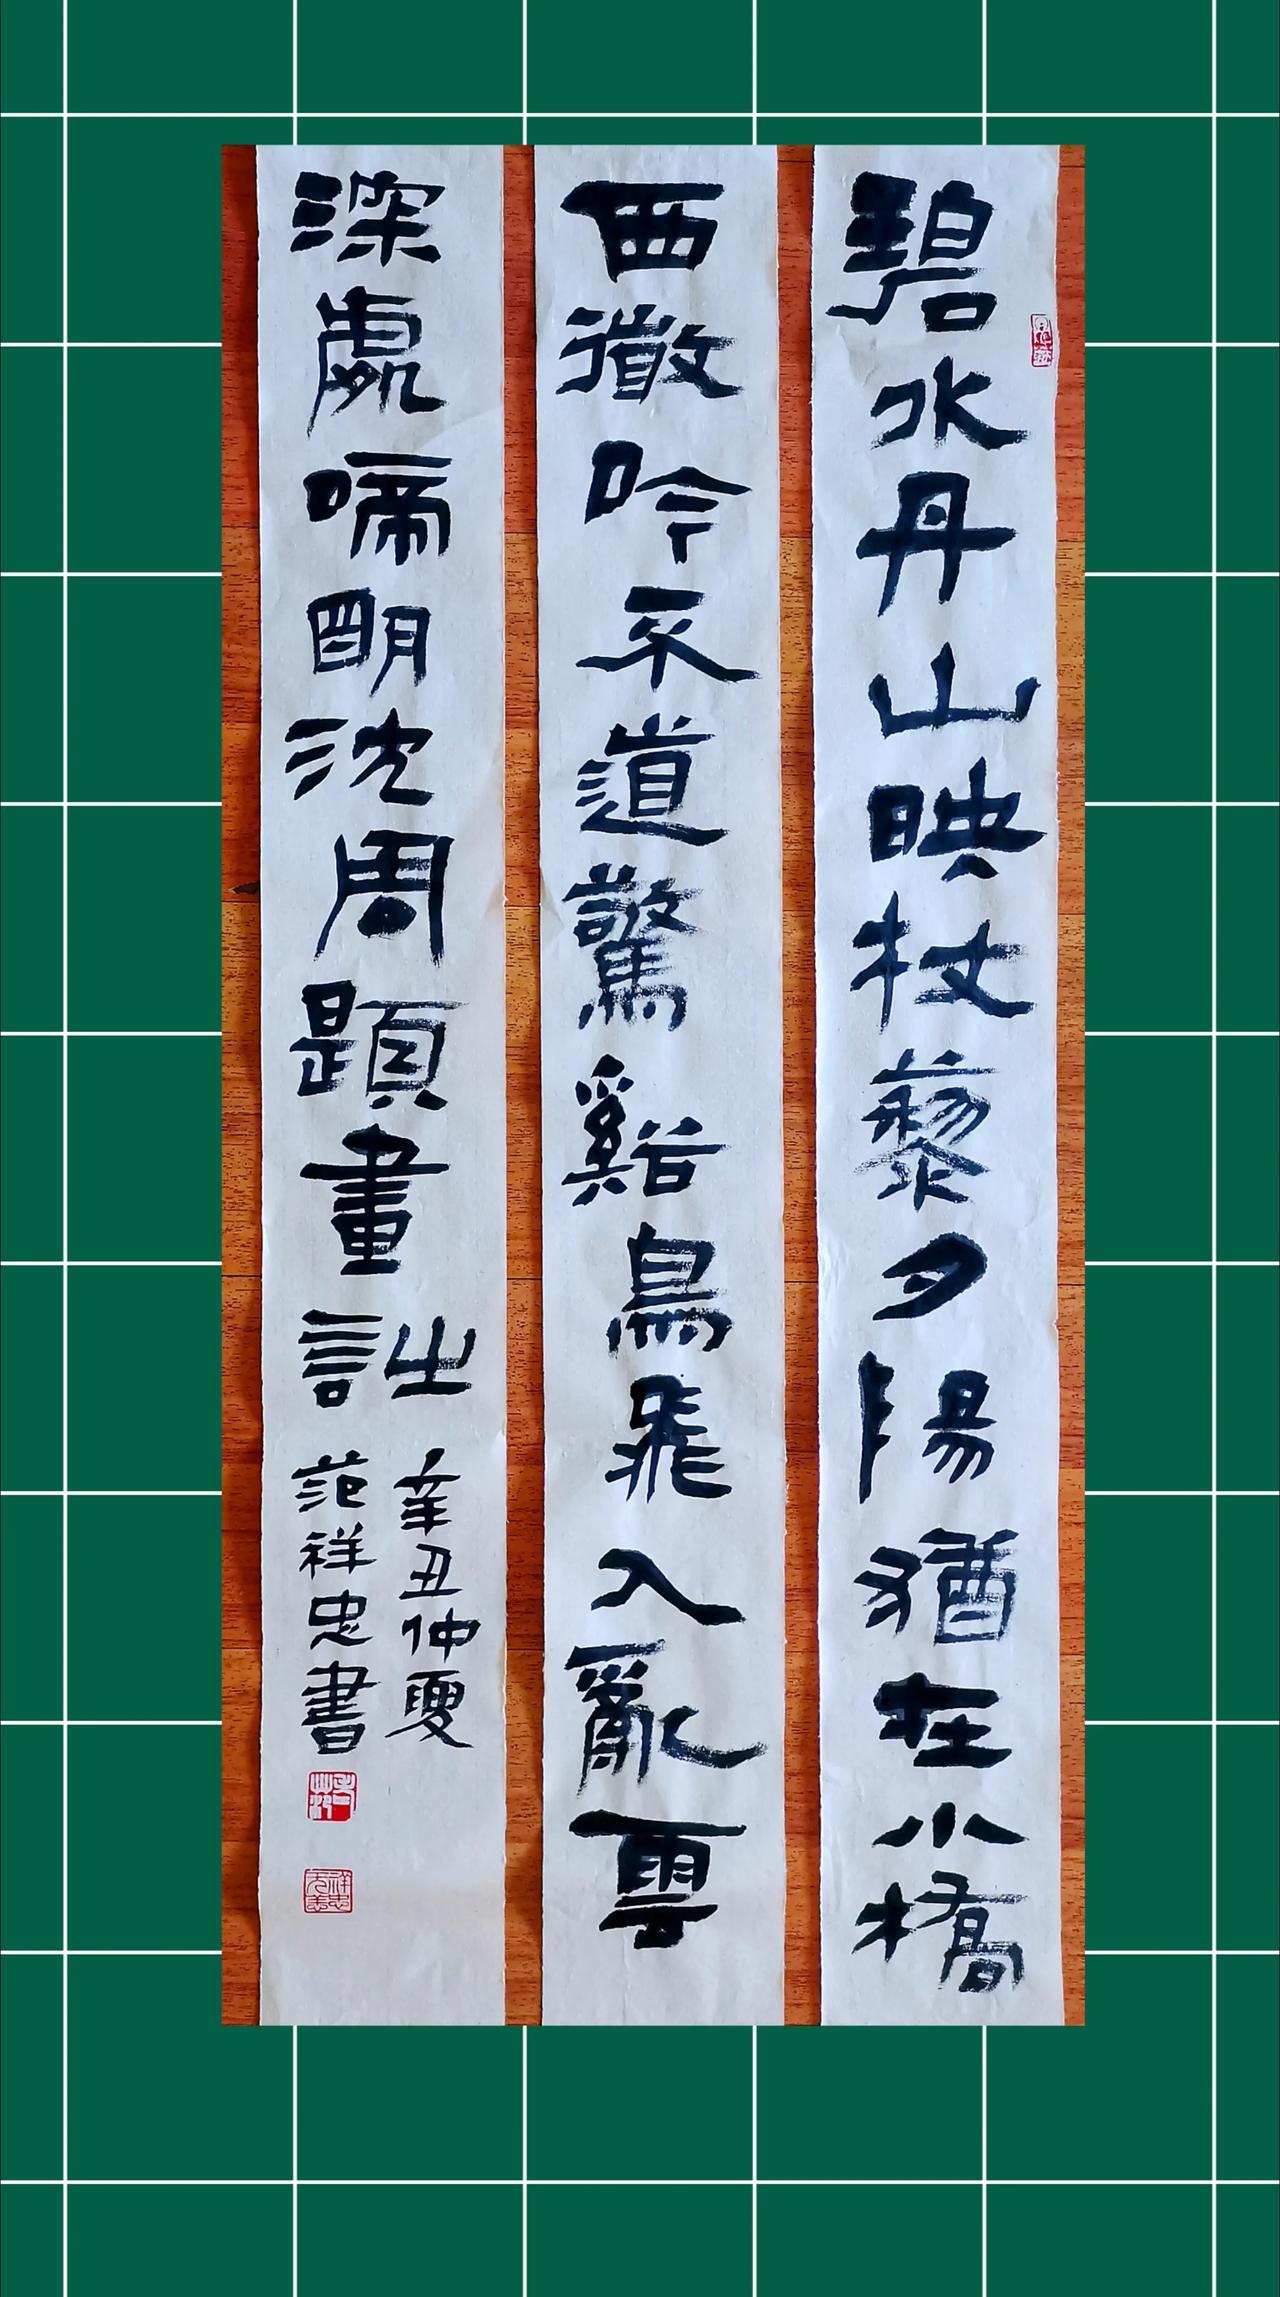 碧水丹山映杖藜夕陽猶在小橋
西微吟不道驚谿鳥飛入亂雲
深處啼明沈周題畫詩
辛丑仲夏
范祥忠書